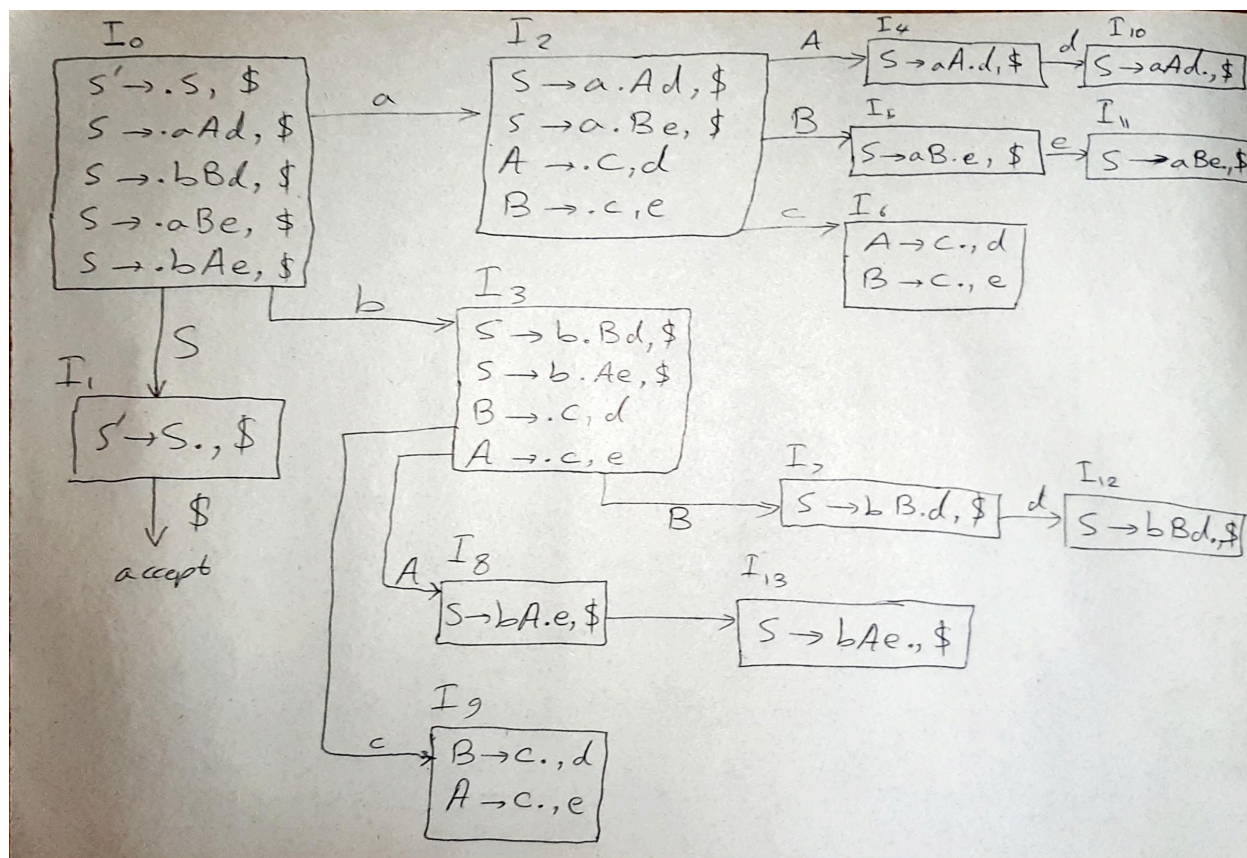 I0
S' → .S, $
S → .aAd, $
S → .bBd, $
S → .aBe, $
S → .bAe, $
a
I2
S → a.Ad, $
S → a.Be, $
A → .c, d
B → .c, e
A
I4
S → aA.d, $
d
I10
S → aAd., $
B
I5
S → aB.e, $
e
I11
S → aBe., $
c
I6
A → c., d
B → c., e
S
I1
S' → S., $
$
accept
b
I3
S → b.Bd, $
S → b.Ae, $
B → .c, d
A → .c, e
B
I7
S → bB.d, $
d
I12
S → bBd., $
A
I8
S → bA.e, $
I13
S → bAe., $
c
I9
B → c., d
A → c., e